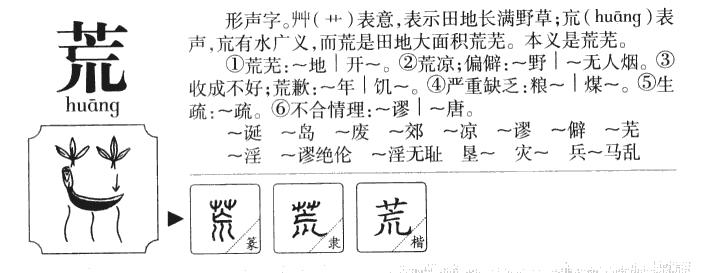 荒
huāng
形声字。艸(艹)表意,表示田地长满野草;巟(huāng)表
声,巟有水广义,而荒是田地大面积荒芜。本义是荒芜。
①荒芜:～地｜开～。②荒凉;偏僻:～野｜～无人烟。③
收成不好;荒歉:～年｜饥～。④严重缺乏:粮～｜煤～。⑤生
疏:～疏。⑥不合情理:～谬｜～唐。
～诞 ～岛 ～废 ～郊 ～凉 ～谬 ～僻 ～芜
～淫 ～谬绝伦 ～淫无耻 垦～ 灾～ 兵～马乱
荒 篆
荒 隶
荒 楷